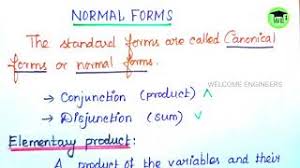 NORMAL FORMS
The standard forms are called Canonical
forms or normal forms.
WELCOME ENGINEERS
→ Conjunction (product) ∧
→ Disjunction (sum) ∨
Elementary product:
A product of the variables and their